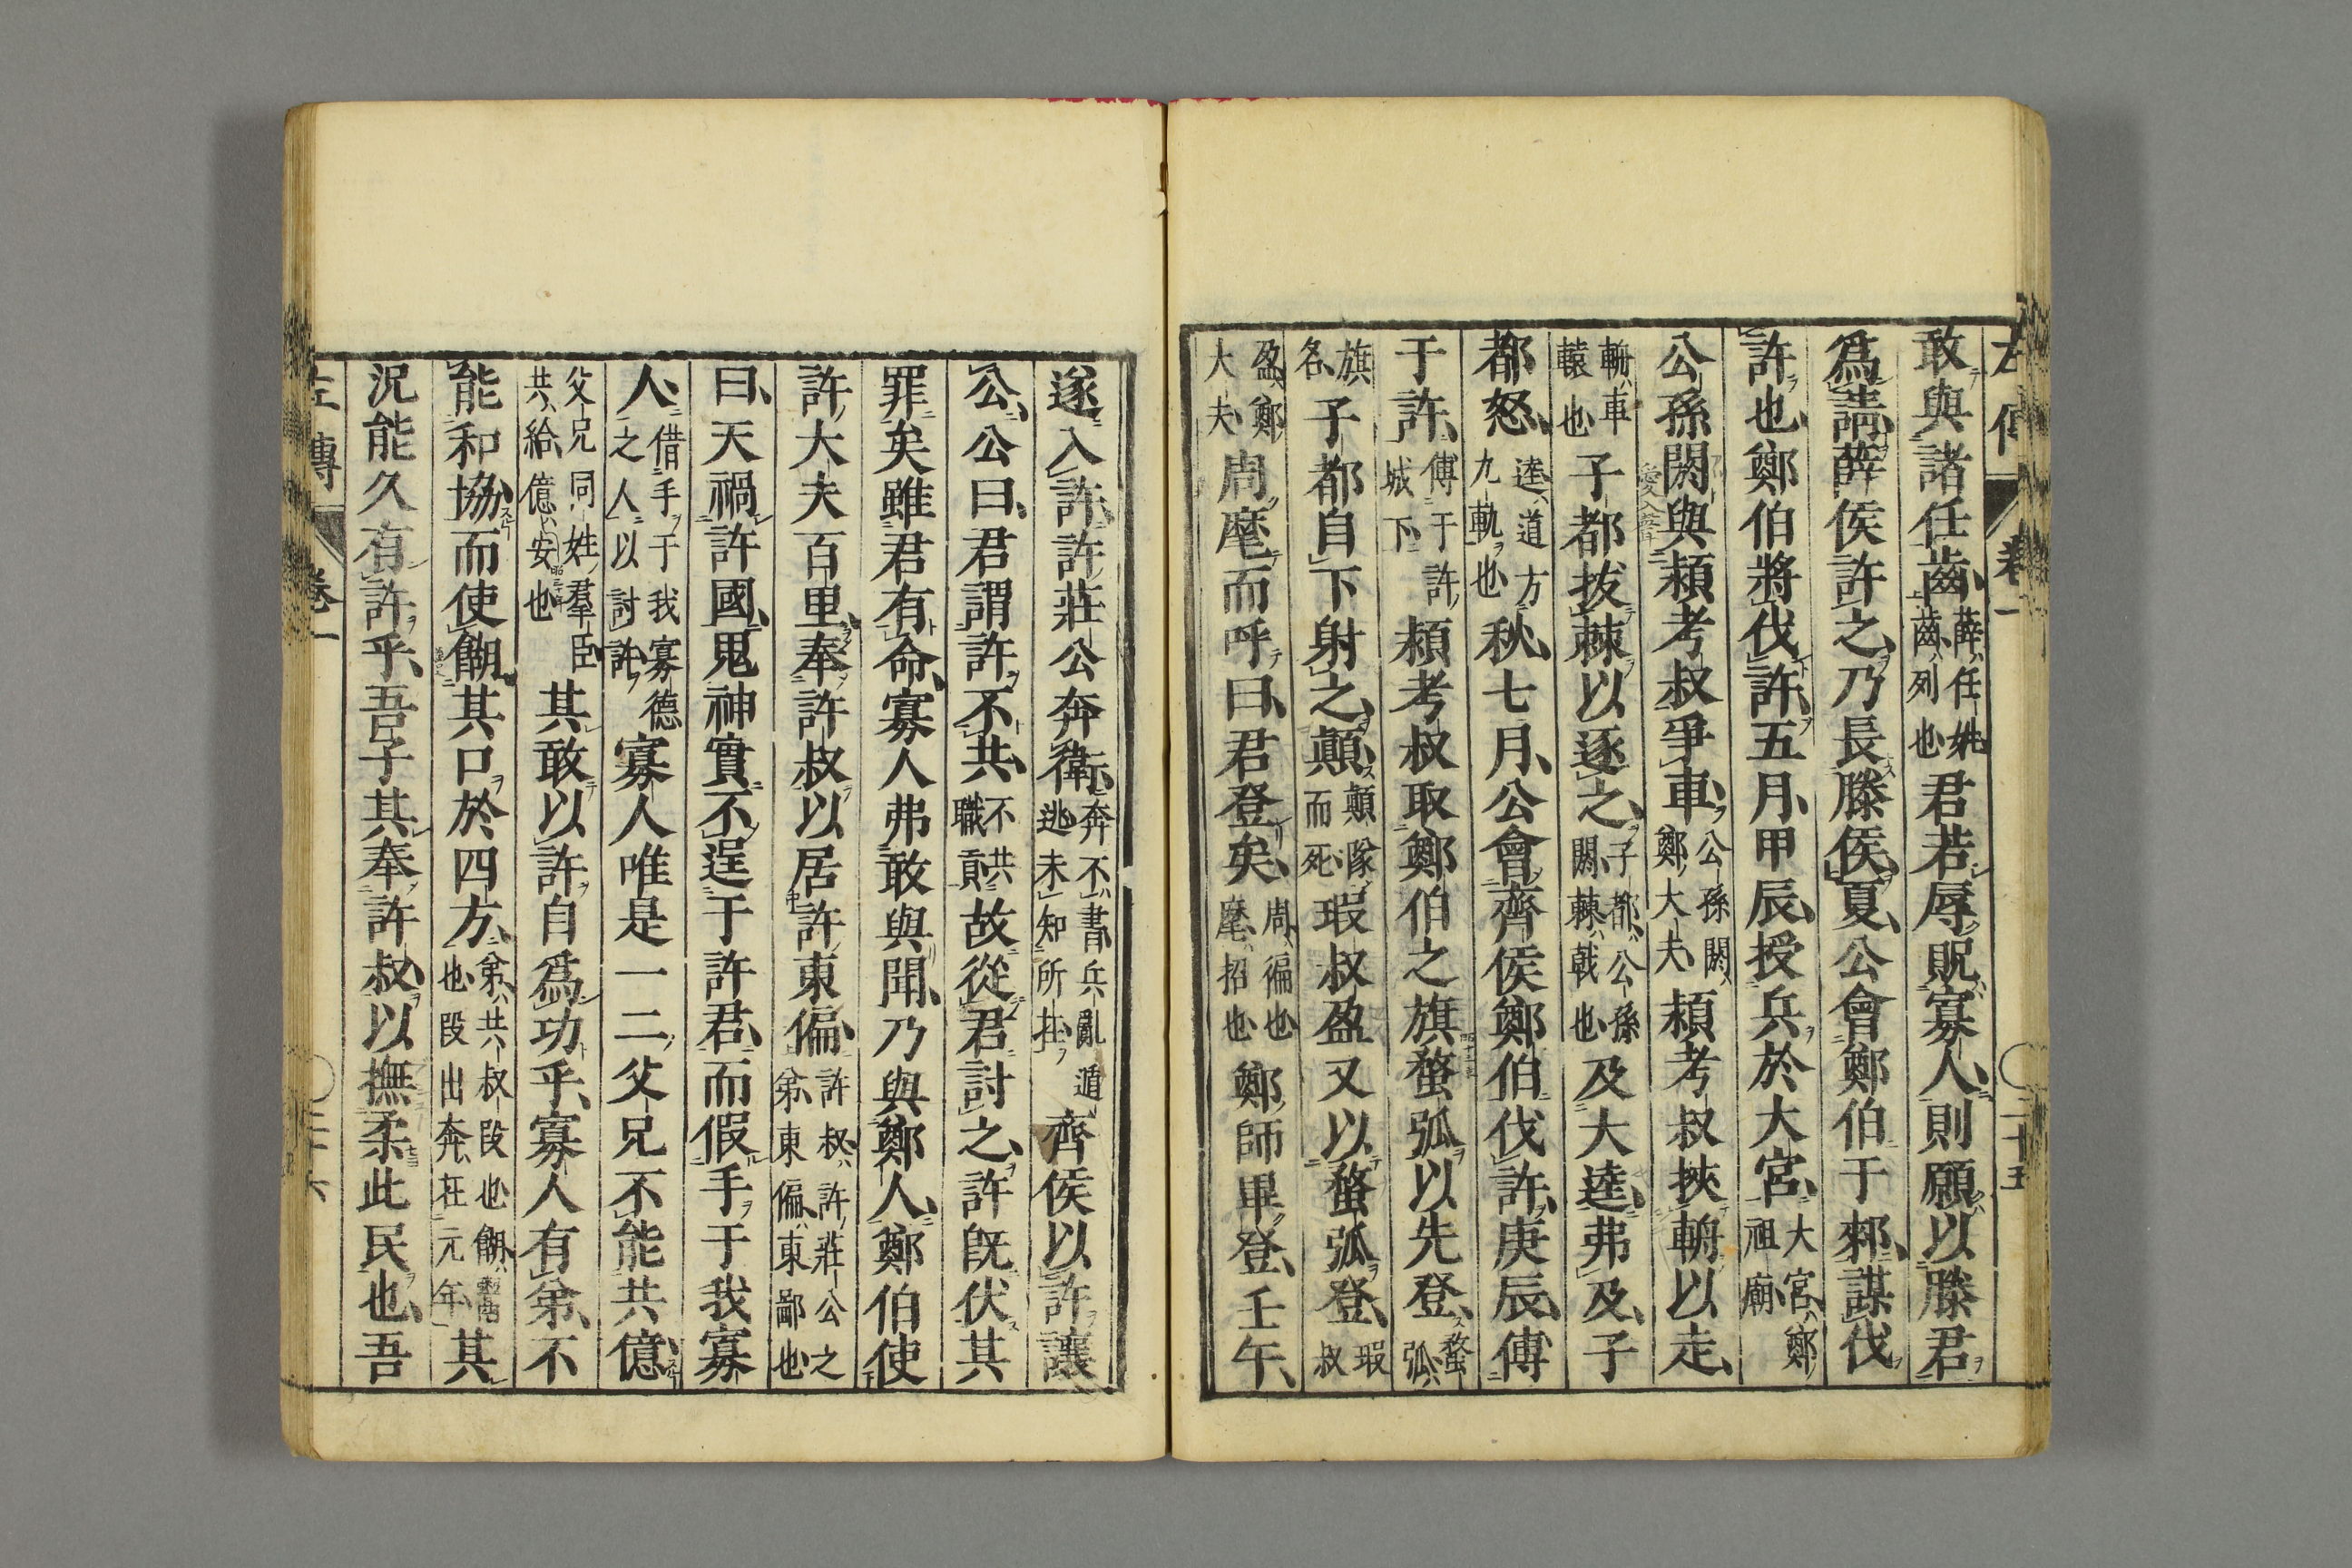 左傳 卷一 二十五
敢與諸任齒薛任姓齒列也君若辱貺寡人則願以滕君
爲請薛侯許之乃長滕侯夏公會鄭伯于郲謀伐
許也鄭伯將伐許五月甲辰授兵於大宮大宮鄭祖廟
公孫閼與潁考叔爭車公孫閼鄭大夫潁考叔挾輈以走
輈車轅也子都拔棘以逐之子都公孫閼棘戟也及大逵弗及子
都怒逵道方九軌也秋七月公會齊侯鄭伯伐許庚辰傅
于許傅于許城下潁考叔取鄭伯之旗蝥弧以先登蝥弧
旗名子都自下射之顛顛隊而死瑕叔盈又以蝥弧登瑕叔
盈鄭大夫周麾而呼曰君登矣周徧也麾招也鄭師畢登壬午
遂入許許莊公奔衛奔不書兵亂遁逃未知所在齊侯以許讓
公公曰君謂許不共不共職貢故從君討之許既伏其
罪矣雖君有命寡人弗敢與聞乃與鄭人鄭伯使
許大夫百里奉許叔以居許東偏許叔許莊公之弟東偏東鄙也
曰天禍許國鬼神實不逞于許君而假手于我寡
人借手于我寡德之人以討許寡人唯是一二父兄不能共億
父兄同姓羣臣共給億安也其敢以許自爲功乎寡人有弟不
能和協而使餬其口於四方弟共叔段也餬也段出奔在元年其
況能久有許乎吾子其奉許叔以撫柔此民也吾
左傳 卷一 二十六